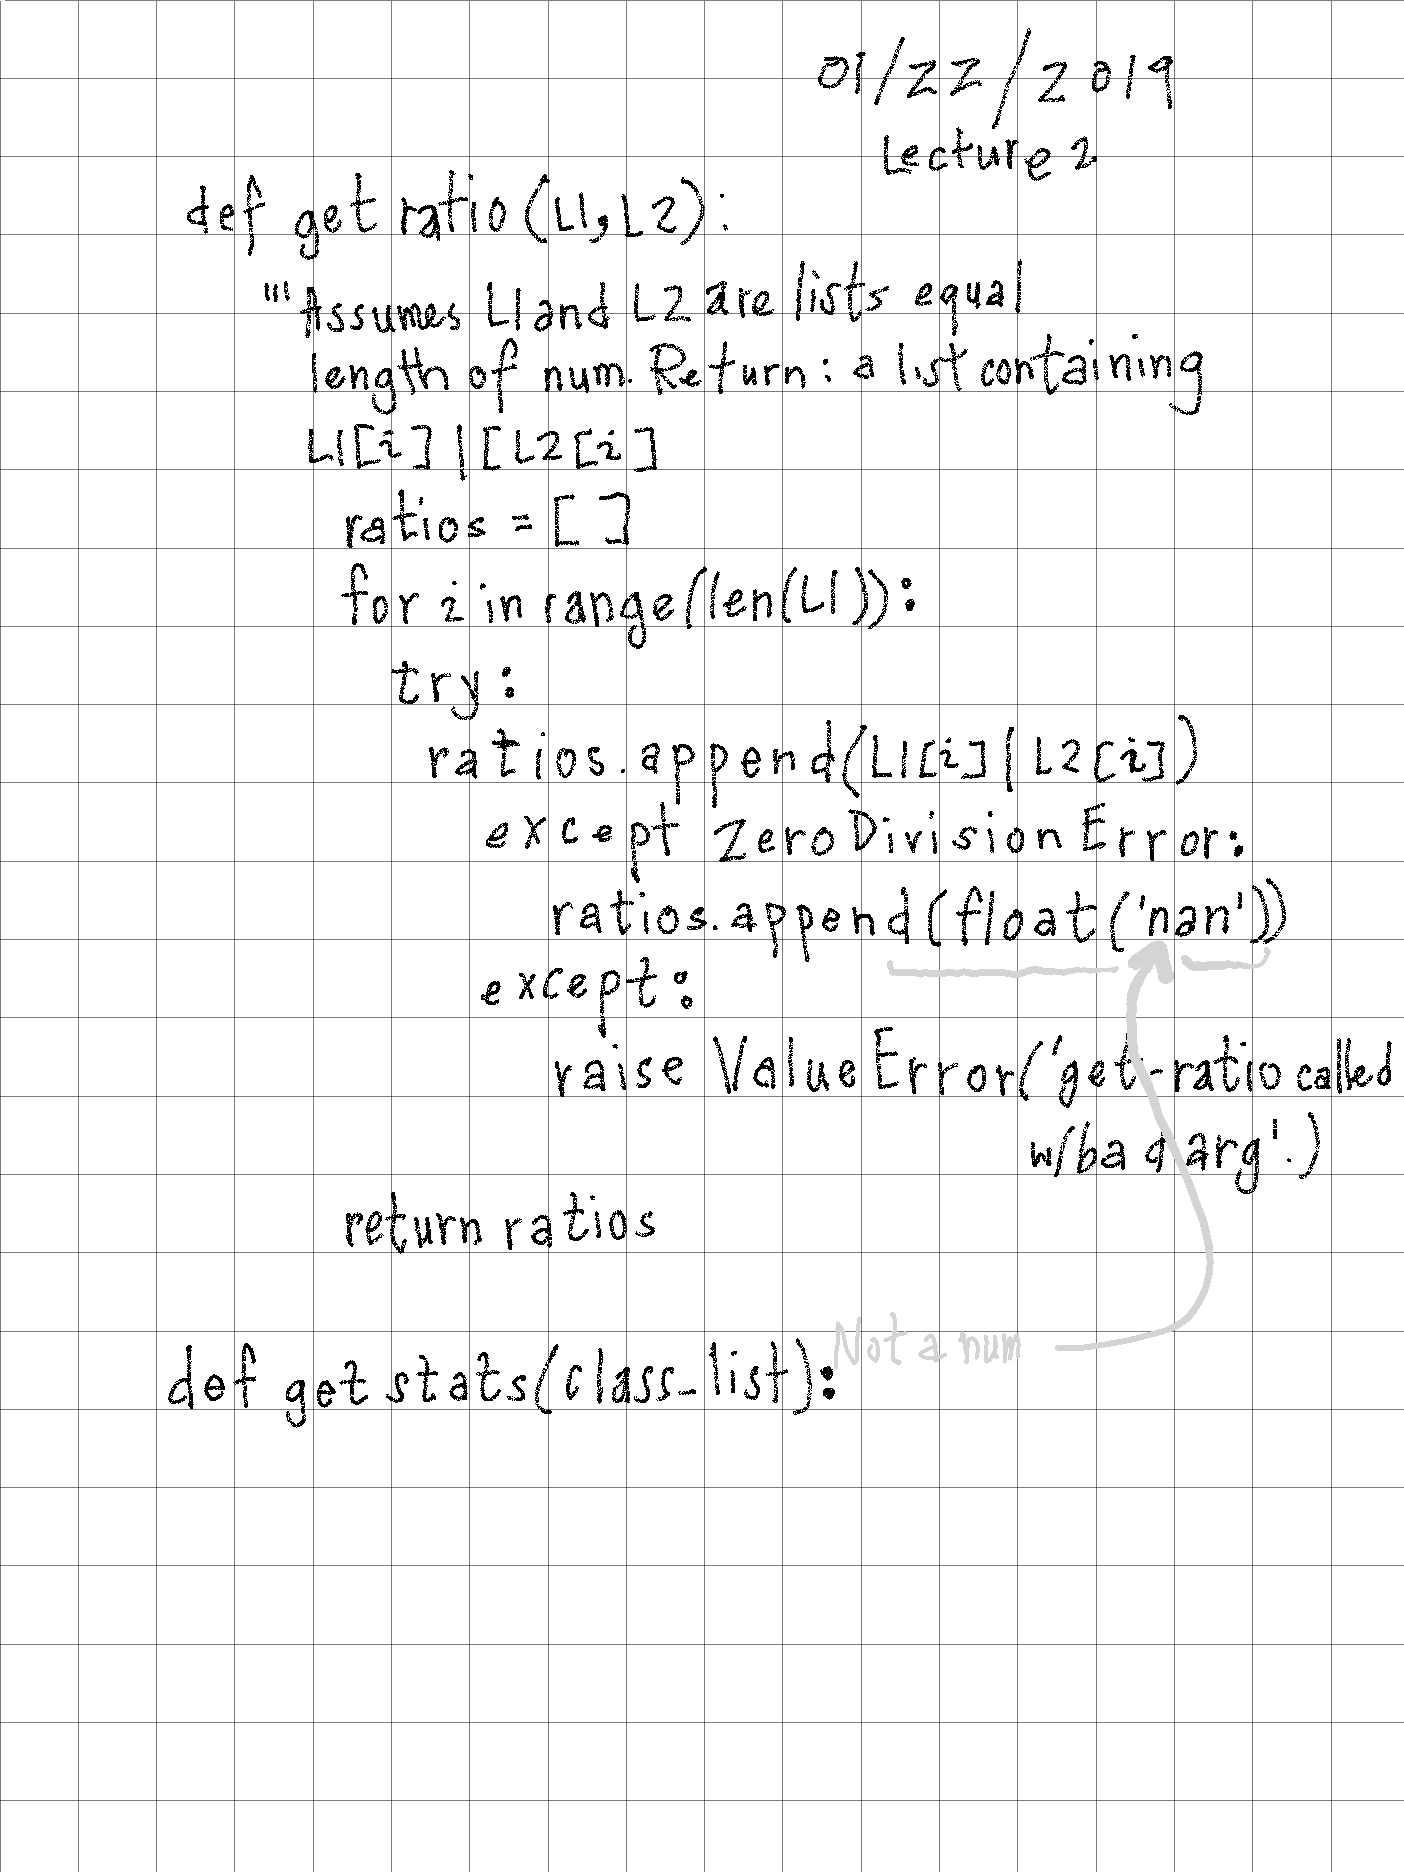 01/22/2019
Lecture 2
def get ratio(L1,L2):
"'Assumes L1 and L2 are lists equal
length of num. Return: a list containing
L1[i]|[L2[i]
ratios = [ ]
for i in range(len(L1)):
try:
ratios.append(L1[i]|L2[i])
except ZeroDivisionError:
ratios.append(float('nan'))
except:
raise ValueError('get-ratio called
w/bad arg'.)
return ratios
Not a num
def get stats(class_list):